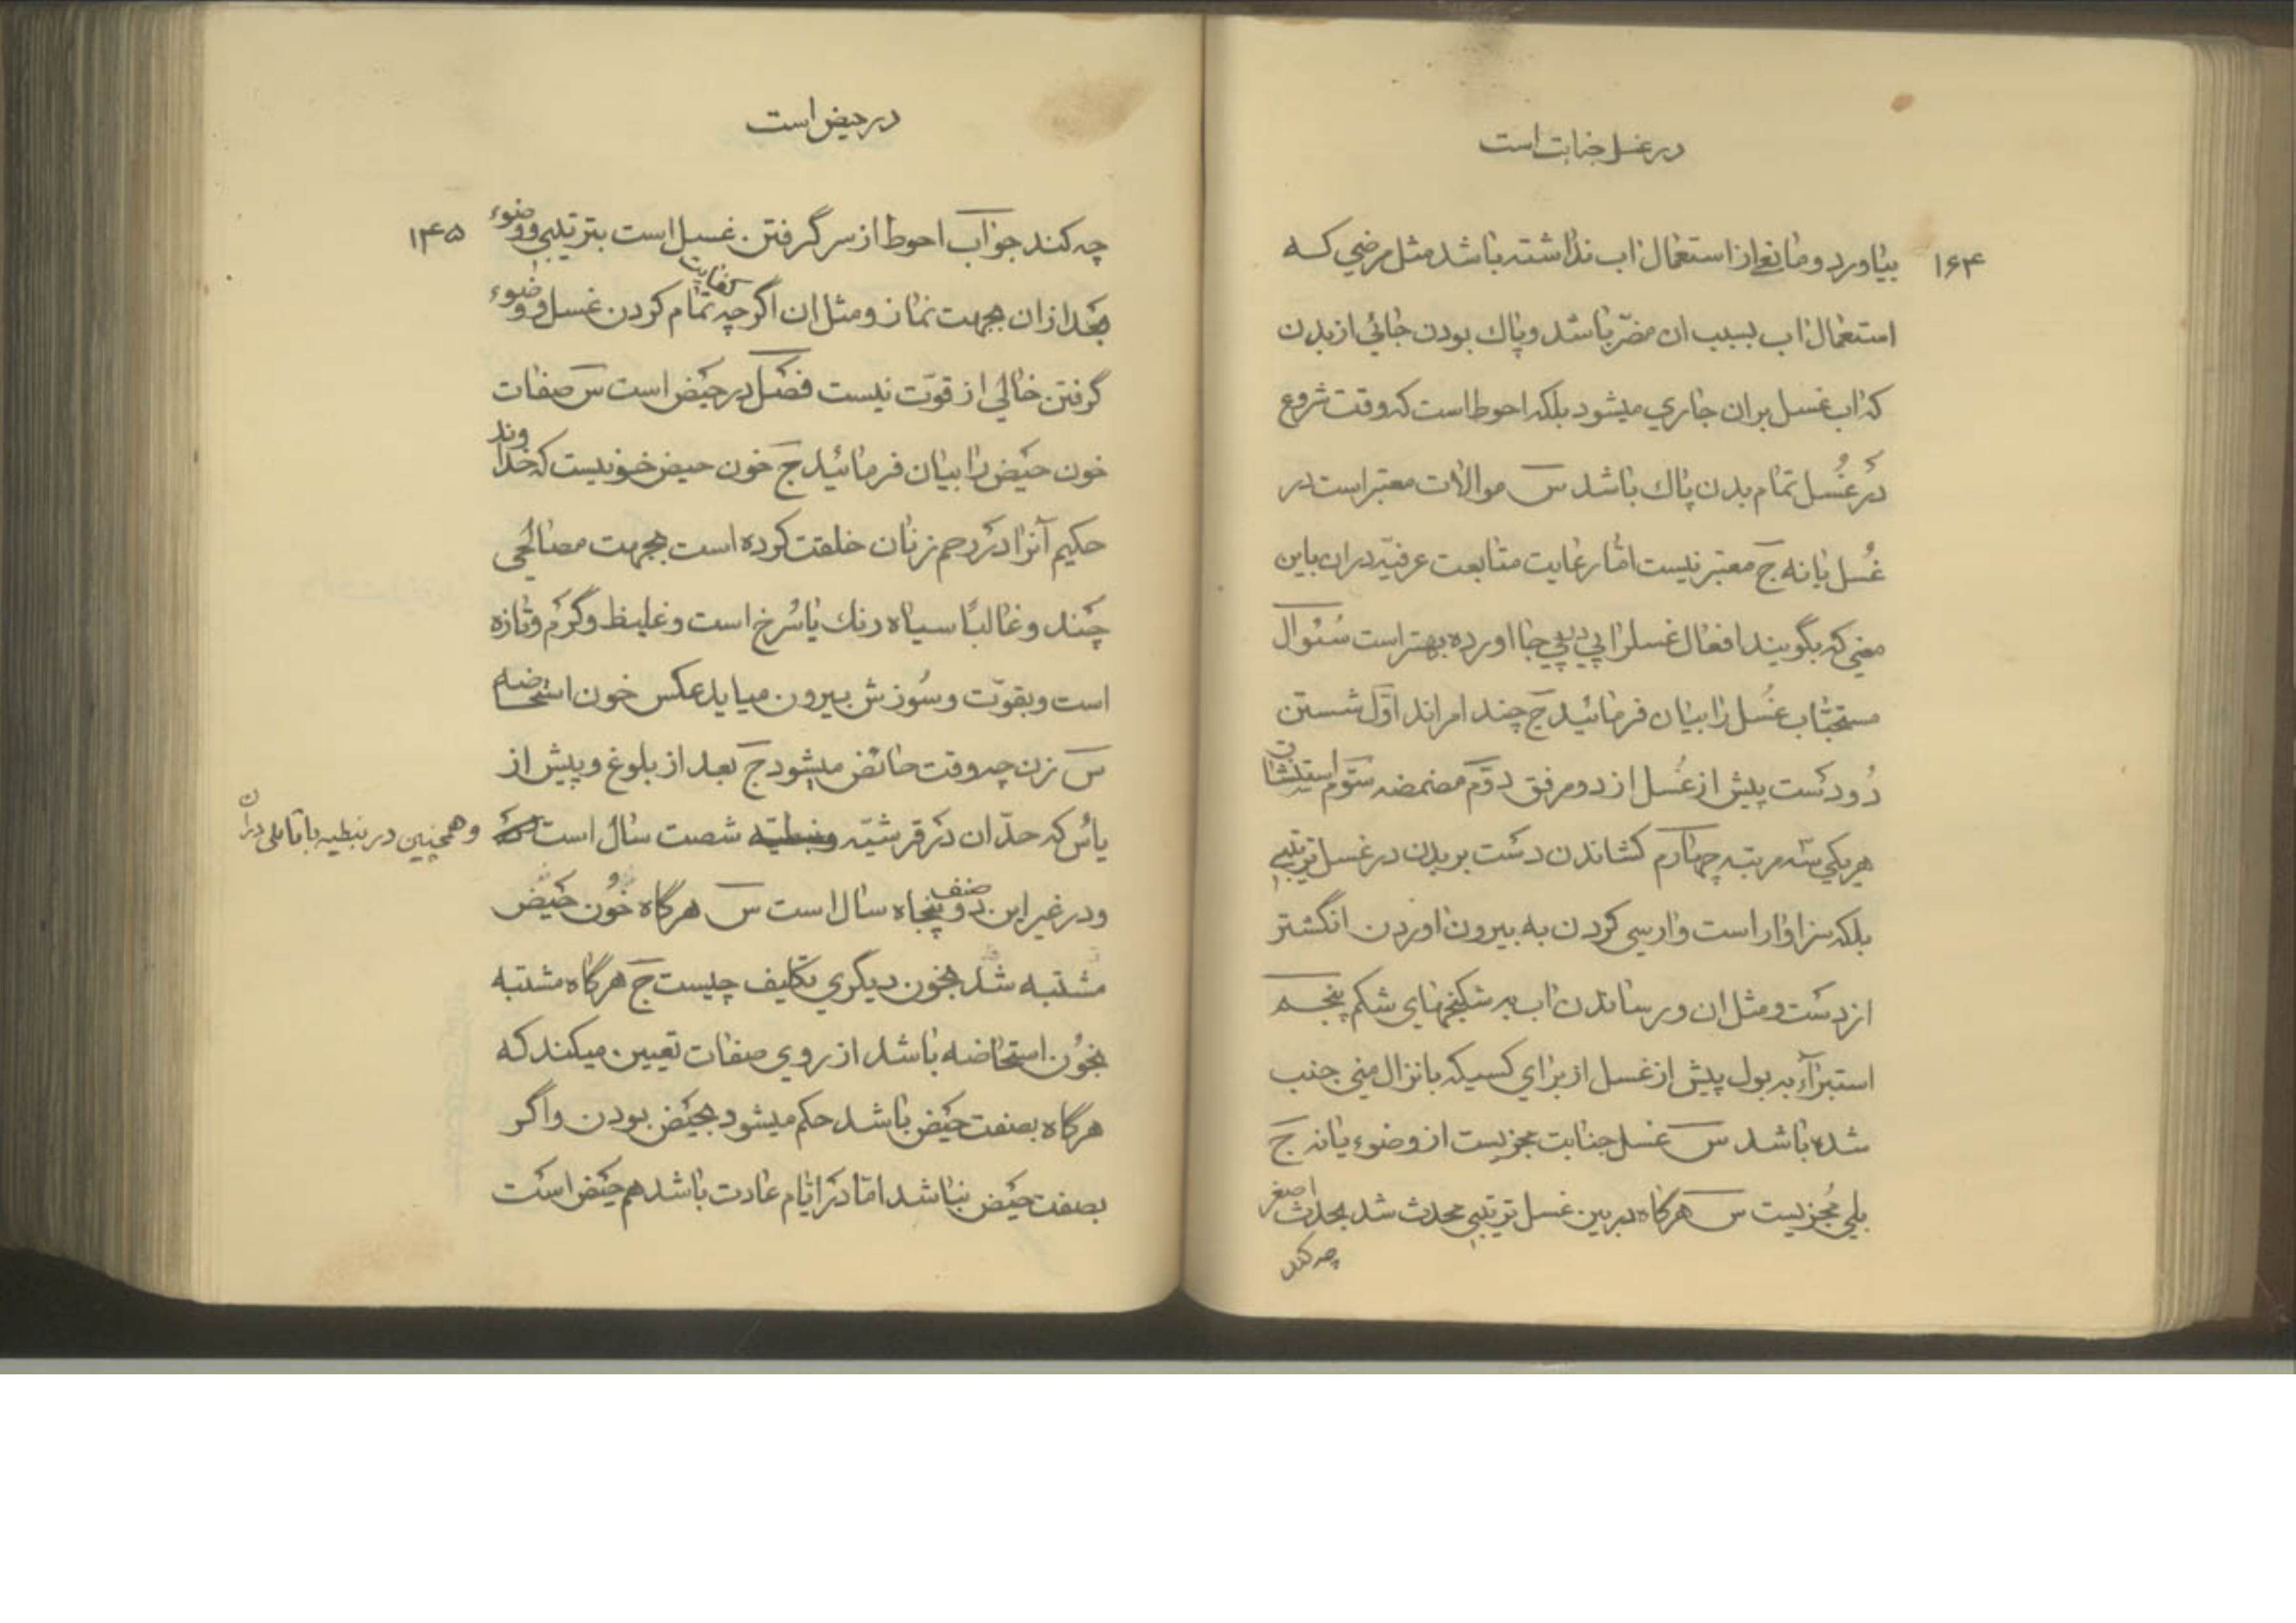 در غسل جنابت است
۱۶۴
بیاورد و مانعی از استعمال اب نداشته باشد مثل مرضی که
استعمال اب بسبب ان مضرّ باشد و پاك بودن جائی از بدن
که اب غسل بران جاری میشود بلکه احوط است که وقت شروع
در غُسل تمام بدن پاك باشد س موالات معتبر است در
غُسل یا نه ج معتبر نیست امّا رعایت متابعت عرفیّه دران باین
معنی که بگویند افعال غسلرا پی در پی بجا اورده بهتر است سُئوال
مستحبّات غُسل را بیان فرمائید ج چند امراند اوّل شستن
دُو دست پیش از غُسل از دو مرفق دوّم مضمضه سوّم استنشاق
هر یکی سّه مرتبه چهارم کشاندن دست بر بدن در غسل ترتیبی
بلکه سزاوار است وارسی کردن به بیرون اوردن انگشتر
از دست و مثل ان و رساندن اب به شکنجهای شکم پنجم
استبرآء به بول پیش از غسل از برای کسیکه بانزال منی جنب
شده باشد س غسل جنابت مجزیست از وضوء یا نه ج
بلی مُجزیست س هرگاه در بین غسل ترتیبی محدث شد بحدث اصغر
چه کند
در حیض است
۱۴۵
چه کند جواب احوط از سر گرفتن غسل است بترتیبی و وضوء
بعد از ان بجهت نماز و مثل ان اگرچه کفایت تمام کردن غسل و وضوء
گرفتن خالی از قوّت نیست فصل در حیض است س صفات
خون حیض را بیان فرمائید ج خون حیض خونیست که خداوند
حکیم آنرا در رحم زنان خلقت کرده است بجهت مصالحی
چند و غالباً سیاه رنك یا سُرخ است و غلیظ و گرم و تازه
است و بقوّت و سُوزش بیرون میاید عکس خون استحاضه
س زن چه وقت حائض میشود ج بعد از بلوغ و پیش از
یأس که حدّ ان در قرشیّه ونبطیّه شصت سال است
وهمچنین در نبطیه با تاملی دران
ودر غیر این دو صنف پنجاه سال است س هرگاه خُون حیض
مشتبه شد بخون دیگری تکلیف چیست ج هرگاه مشتبه
بخون استحاضه باشد از روی صفات تعیین میکند که
هرگاه بصفت حیض باشد حکم میشود بحیض بودن و اگر
بصفت حیض نباشد امّا در ایّام عادت باشد هم حیض است